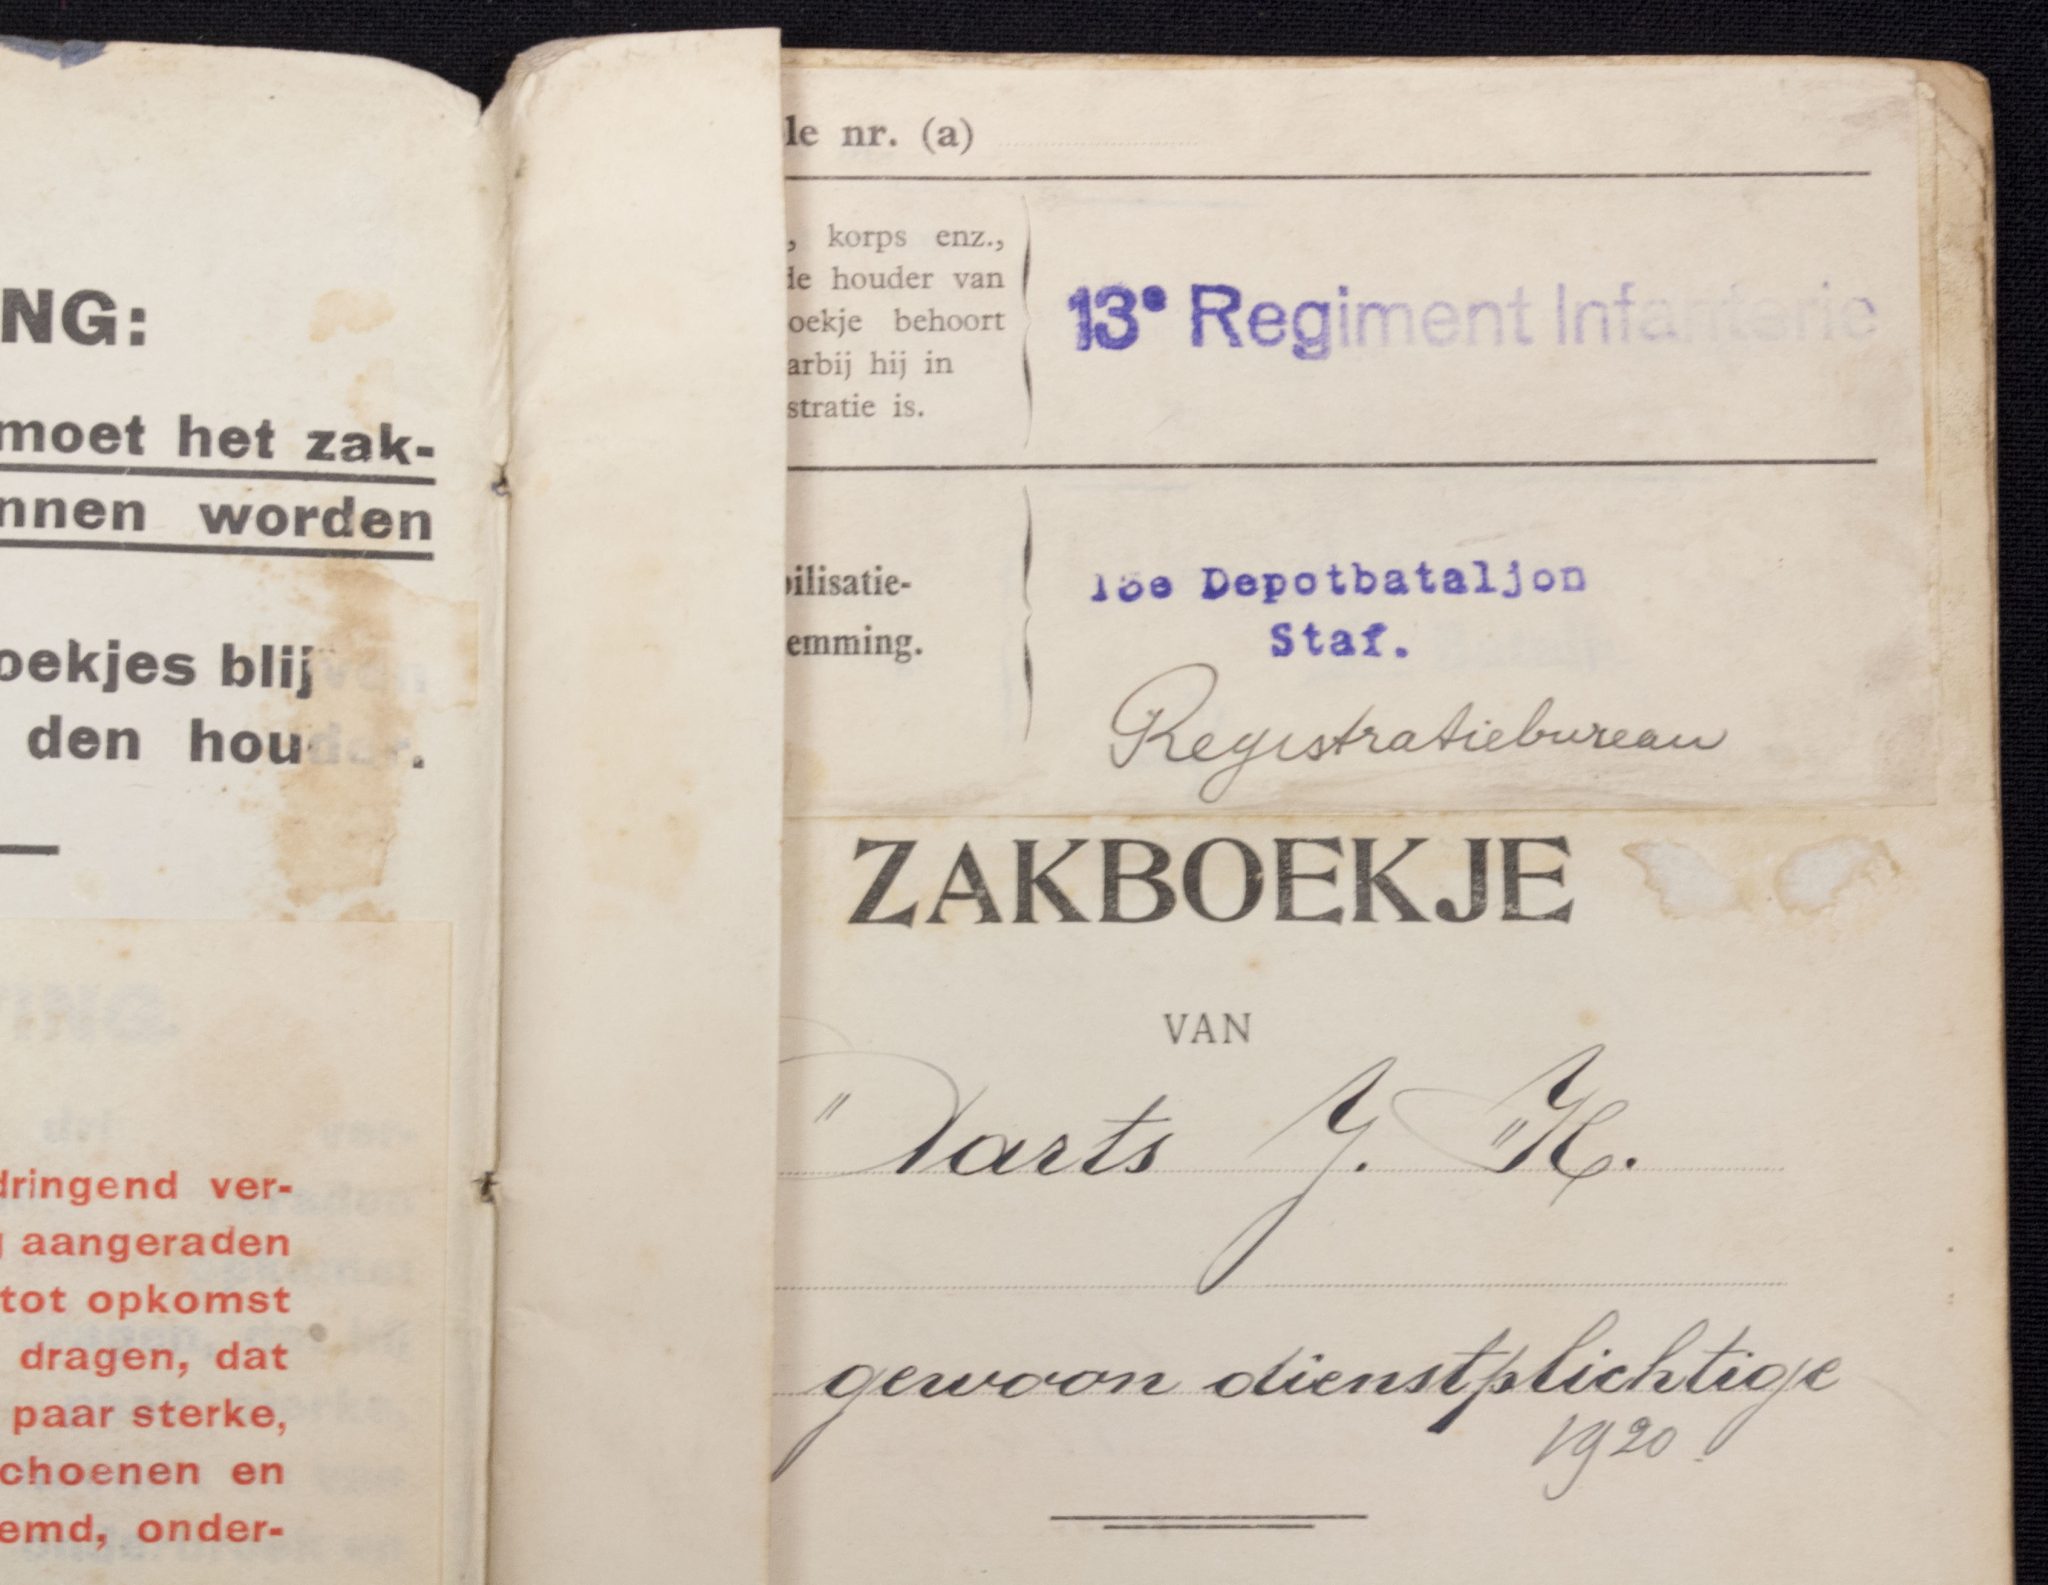 NG:
moet het zak-
nnen worden
oekjes blijven
den houder.
dringend ver-
aangeraden
tot opkomst
dragen, dat
paar sterke,
choenen en
emd, onder-
le nr. (a)
, korps enz.,
de houder van
oekje behoort
arbij hij in
stratie is.
13e Regiment Infanterie
bilisatie-
emming.
Depotbataljon
Staf.
Registratiebureau
ZAKBOEKJE
VAN
Darts J. H.
gewoon dienstplichtige
1920.